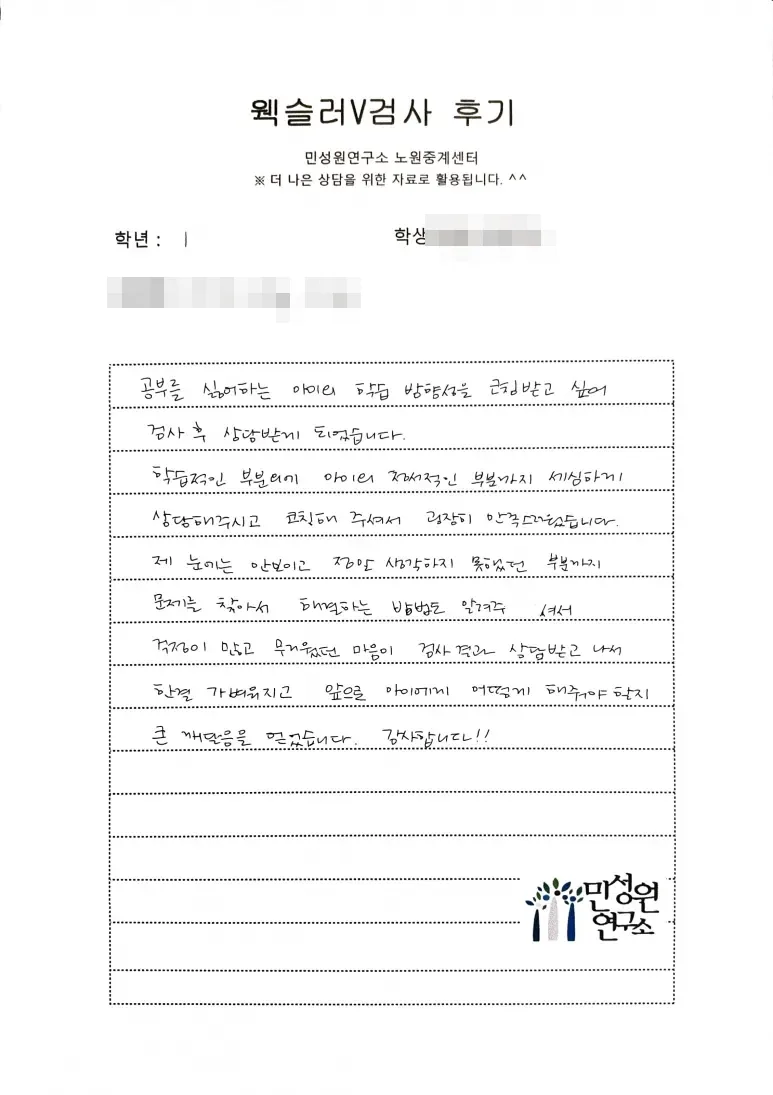 웩슬러V검사 후기
민성원연구소 노원중계센터
※ 더 나은 상담을 위한 자료로 활용됩니다. ^^
학년 : 1
학생
공부를 싫어하는 아이의 학습 방향성을 코칭받고 싶어
검사 후 상담받게 되었습니다.
학습적인 부분외에 아이의 정서적인 부분까지 세심하게
상담해주시고 코칭해 주셔서 굉장히 만족스러웠습니다.
제 눈에는 안보이고 정말 생각하지 못했던 부분까지
문제를 찾아서 해결하는 방법도 알려주 셔서
걱정이 많고 무거웠던 마음이 검사 결과 상담받고 나서
한결 가벼워지고 앞으로 아이에게 어떻게 해줘야 할지
큰 깨달음을 얻었습니다. 감사합니다!!
민성원
연구소